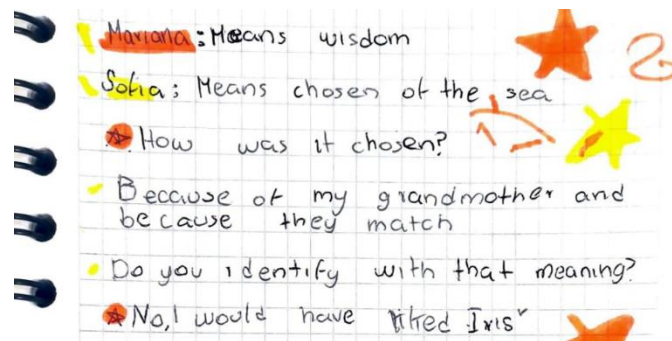 Mariana: Means wisdom
Sofia: Means chosen of the sea
How was it chosen?
Because of my grandmother and
because they match
Do you identify with that meaning?
No, I would have liked Iris